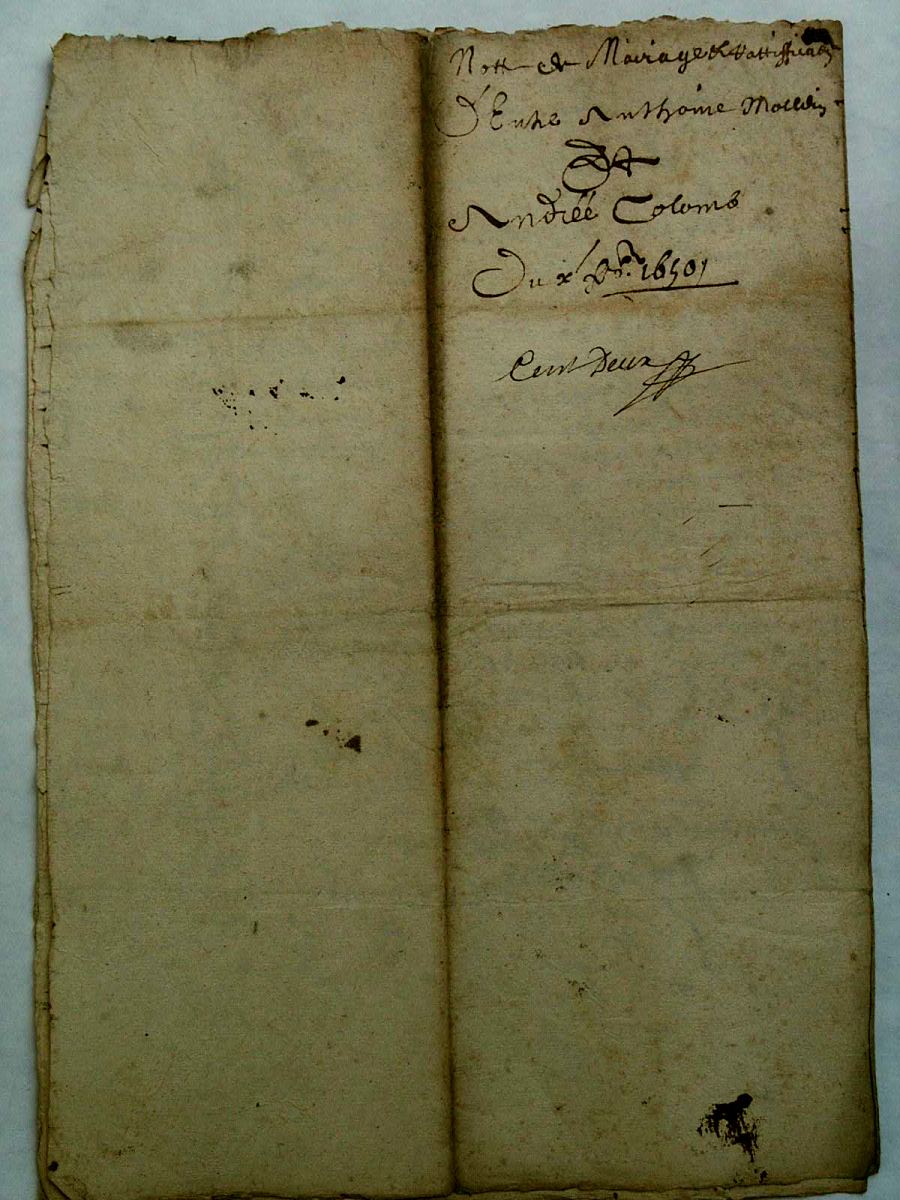 Notte de Mariage & Rattiffication
D'Entre Anthoine
Et
Andrée Colomb
Du x 1650
Cent Deux